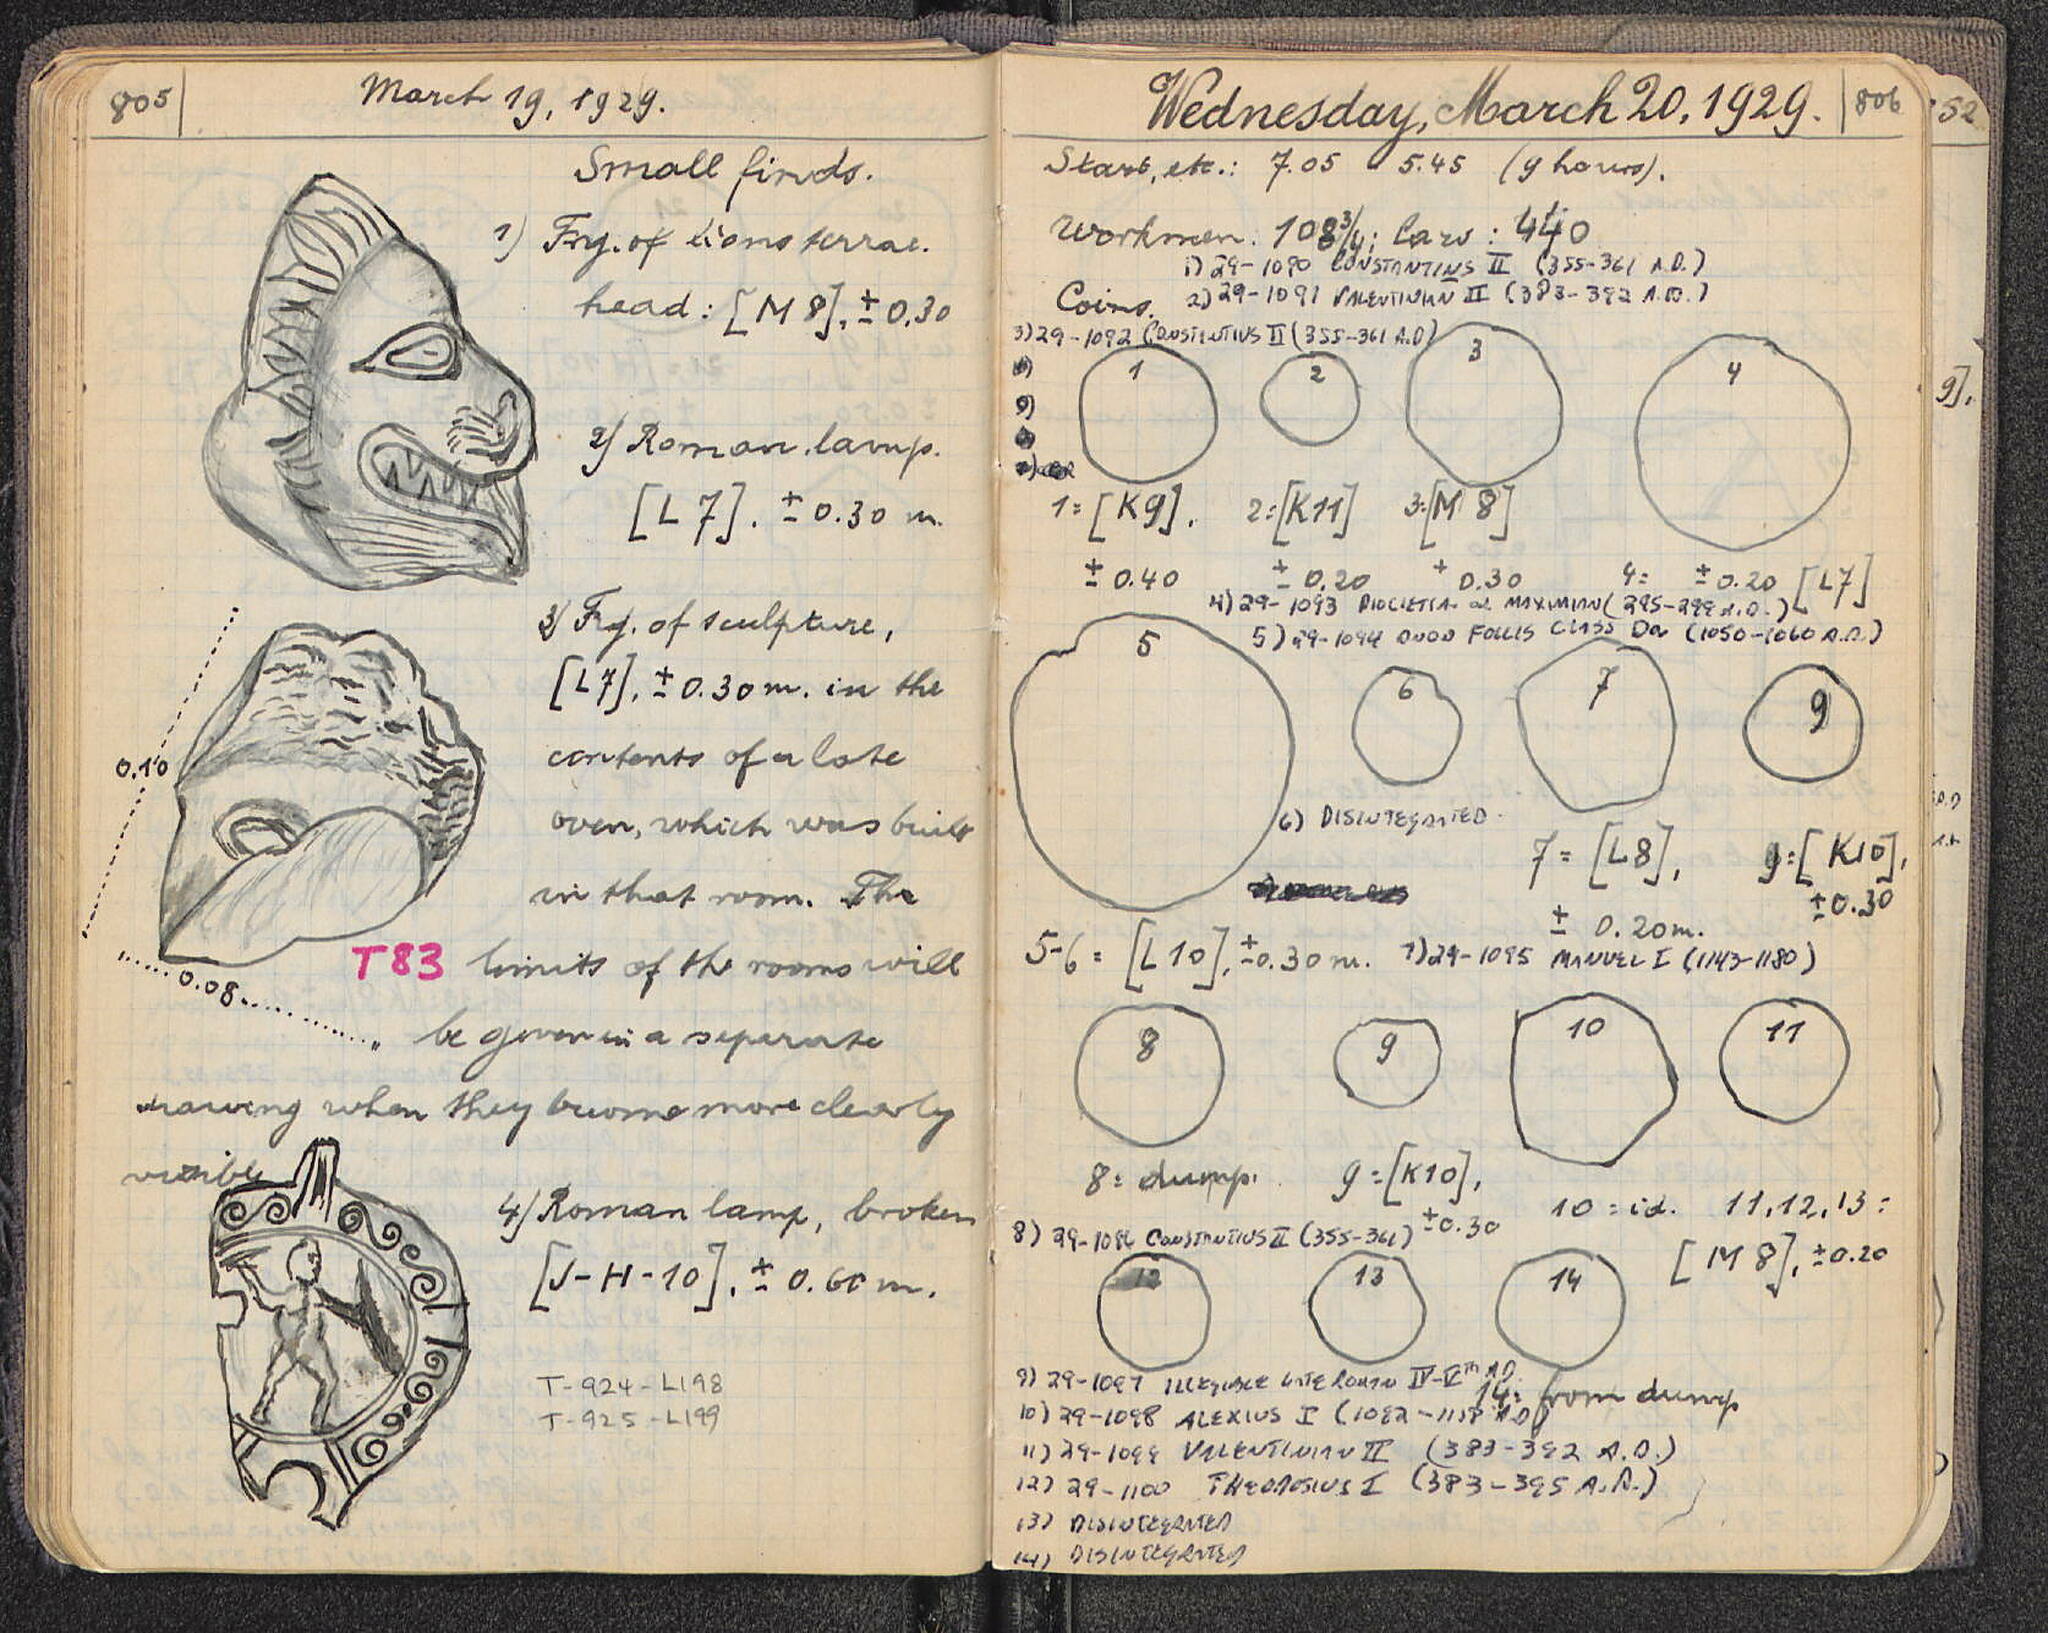 805
March 19, 1929.
Small finds.
1) Frg. of lions terrac.
head: [M 8], ± 0.30
2) Roman lamp.
[L 7]. ± 0.30 m.
3) Frg. of sculpture,
[L7], ± 0.30 m. in the
contents of a late
0.10
oven, which was built
in that room. The
T83 limits of the rooms will
0.08
be given in a separate
drawing when they become more clearly
visible
4) Roman lamp, broken
[J-H-10], ± 0.60 m.
T-924-L198
T-925-L199
Wednesday, March 20, 1929. 806
52
Start, etc.: 7.05 5.45 (9 hours).
Workmen. 108 3/4; Cars: 440
1) 29-1090 CONSTANTIUS II (355-361 A.D.)
Coins. 2) 29-1091 VALENTINIAN II (383-392 A.D.)
3) 29-1092 CONSTANTIUS II (355-361 A.D)
1 2 3 4
9],
1= [K9]. 2=[K11] 3=[M 8]
± 0.40 ± 0.20 + 0.30 4= ± 0.20 [L7]
4) 29-1093 DIOCLETIAN or MAXIMIAN (295-299 A.D.)
5) 29-1094 ANON FOLLIS CLASS Da (1050-1060 A.D.)
5 6 7 9
6) DISINTEGRATED.
7 = [L8], 9=[K10],
± 0.20 m. ±0.30
5-6 = [L10], ±0.30 m. 7) 29-1095 MANUEL I (1143-1180)
8 9 10 11
8= dump. 9=[K10], 10 = id. 11,12,13:
8) 29-1096 CONSTANTIUS II (355-361) ±0.30
[M 8], ±0.20
12 13 14
9) 29-1097 ILLEGIBLE LATE ROMAN IV-Vth AD.
14: from dump
10) 29-1098 ALEXIUS I (1092-1118 A.D)
11) 29-1099 VALENTINIAN II (383-392 A.D.)
12) 29-1100 THEODOSIUS I (383-395 A.D.)
13) DISINTEGRATED
14) DISINTEGRATED